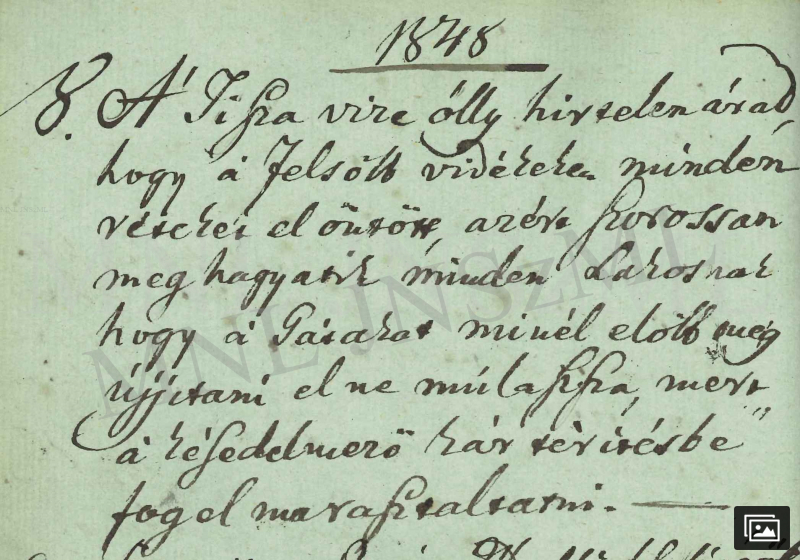 1848
8. A' Tisza vize ólly hirtelen árad,
hogy á Felsőbb vidékeken minden
réteket el öntött, azért szorossan
meg hagyatik minden Lakosnak
hogy á Gátakat minél előbb még
újjitani el ne múlassza, mert
á késedelmező kár térítésbe"
fog el marasztaltatni. —
MNL JNSzML